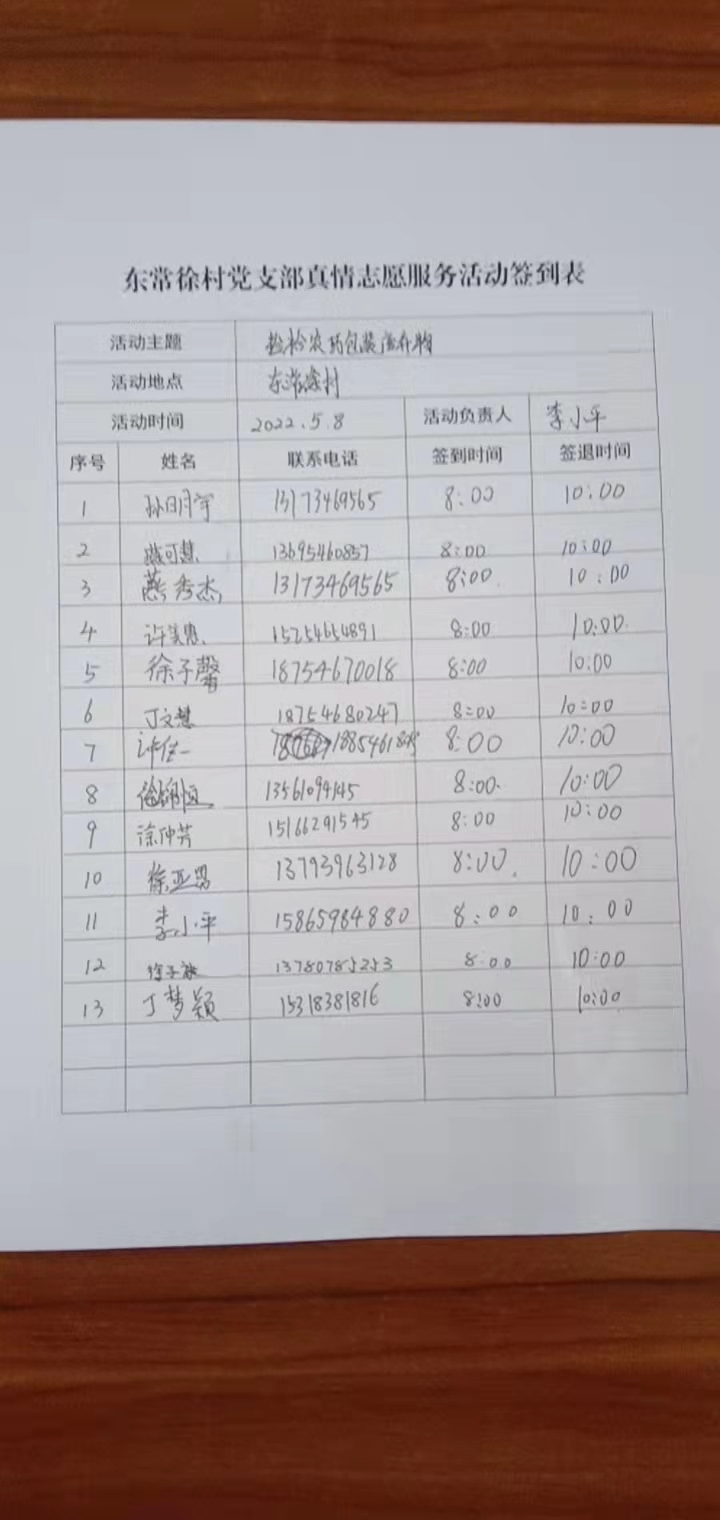 东常徐村党支部真情志愿服务活动签到表
活动主题 捡拾农药包装废弃物
活动地点 东常徐村
活动时间 2022.5.8 活动负责人 李小平
序号 姓名 联系电话 签到时间 签退时间
1 孙明宇 13173469565 8:00 10:00
2 可慧 13695460857 8:00 10:00
3 燕秀杰 13173469565 8:00 10:00
4 许 15254654891 8:00 10:00
5 徐子馨 18754670018 8:00 10:00
6 丁文慧 18754680247 8:00 10:00
7 许佳一 8:00 10:00
8 徐 13561094145 8:00 10:00
9 徐仲芳 15166291545 8:00 10:00
10 徐亚男 13793963128 8:00 10:00
11 李小平 15865984880 8:00 10:00
12 徐子 13780785253 8:00 10:00
13 丁梦颖 15318381816 8:00 10:00